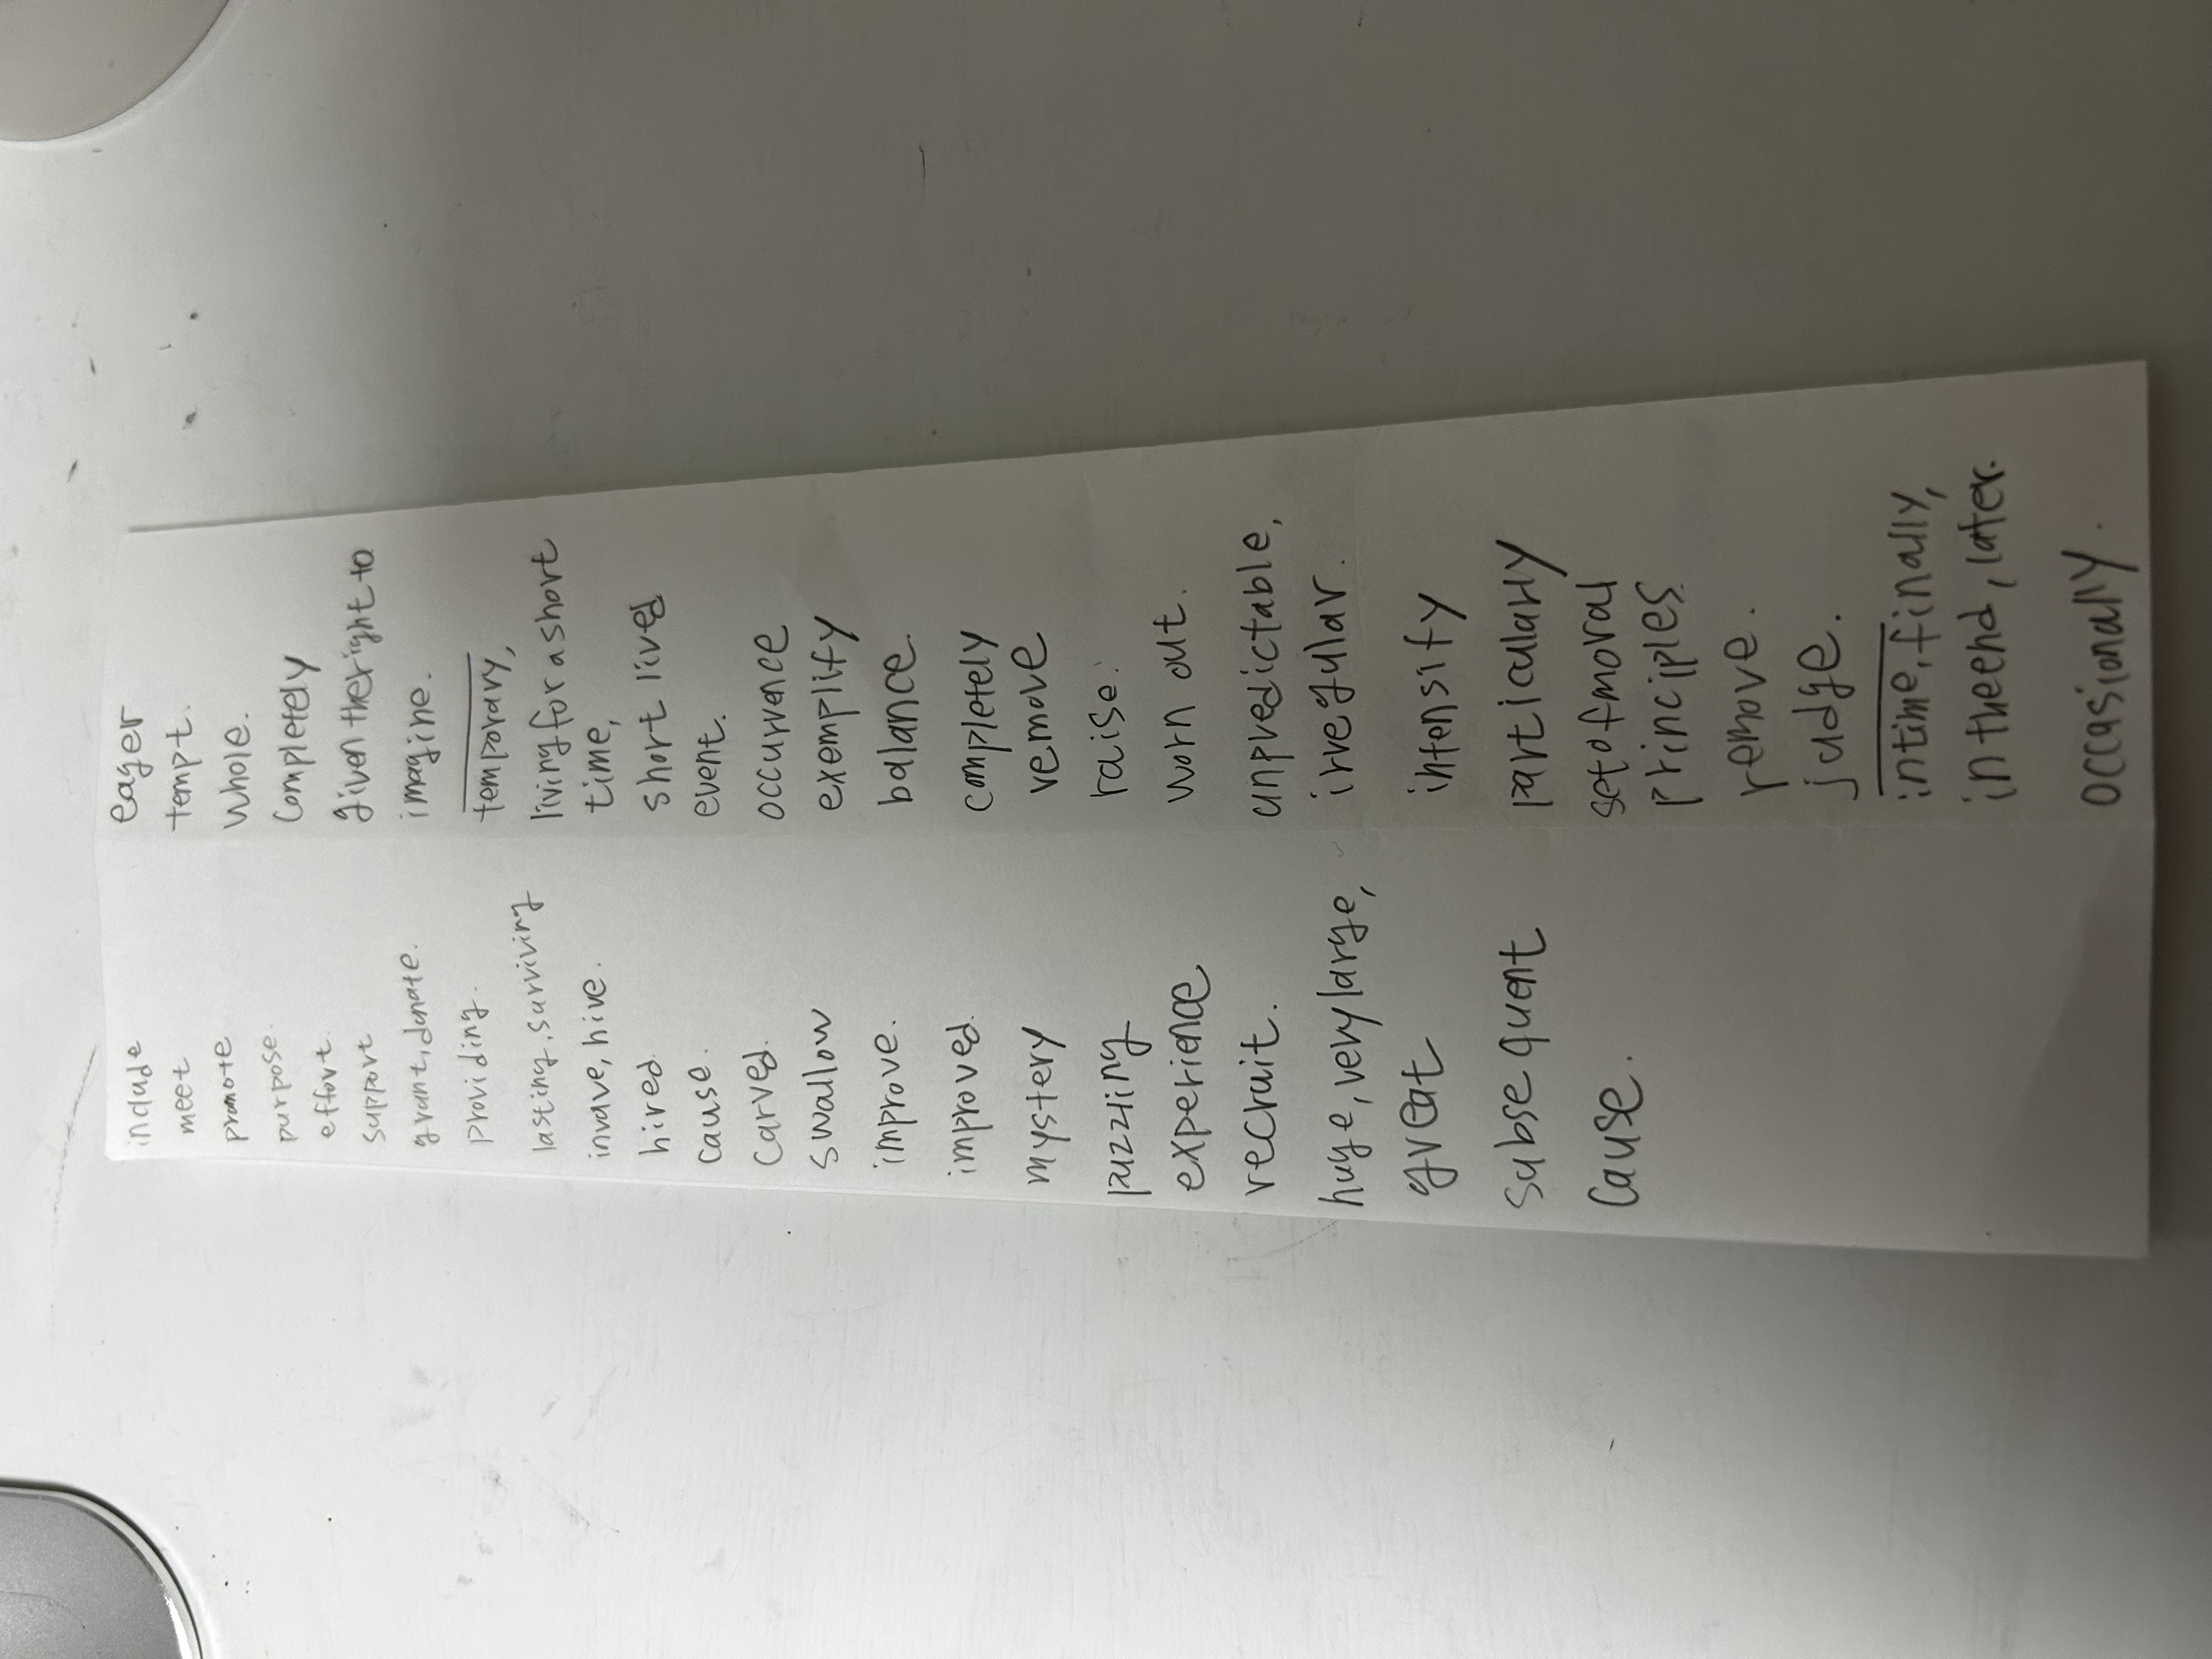 include
meet
promote
purpose.
effort.
support
grant, donate.
providing.
lasting, surviving
invave, hive.
hired.
cause.
carved.
swallow
improve.
improved.
mystery
puzzling
experience
recruit.
huge, very large,
great
subsequent
cause.
eager
tempt.
whole.
completely
given the right to
imagine.
temporary,
living for a short
time,
short lived
event.
occurrence
exemplify
balance.
completely
remove
raise.
worn out.
unpredictable,
irregular.
intensify
particularly
set of moral
principles.
remove.
judge.
in time, finally,
in the end, later.
occasionally.